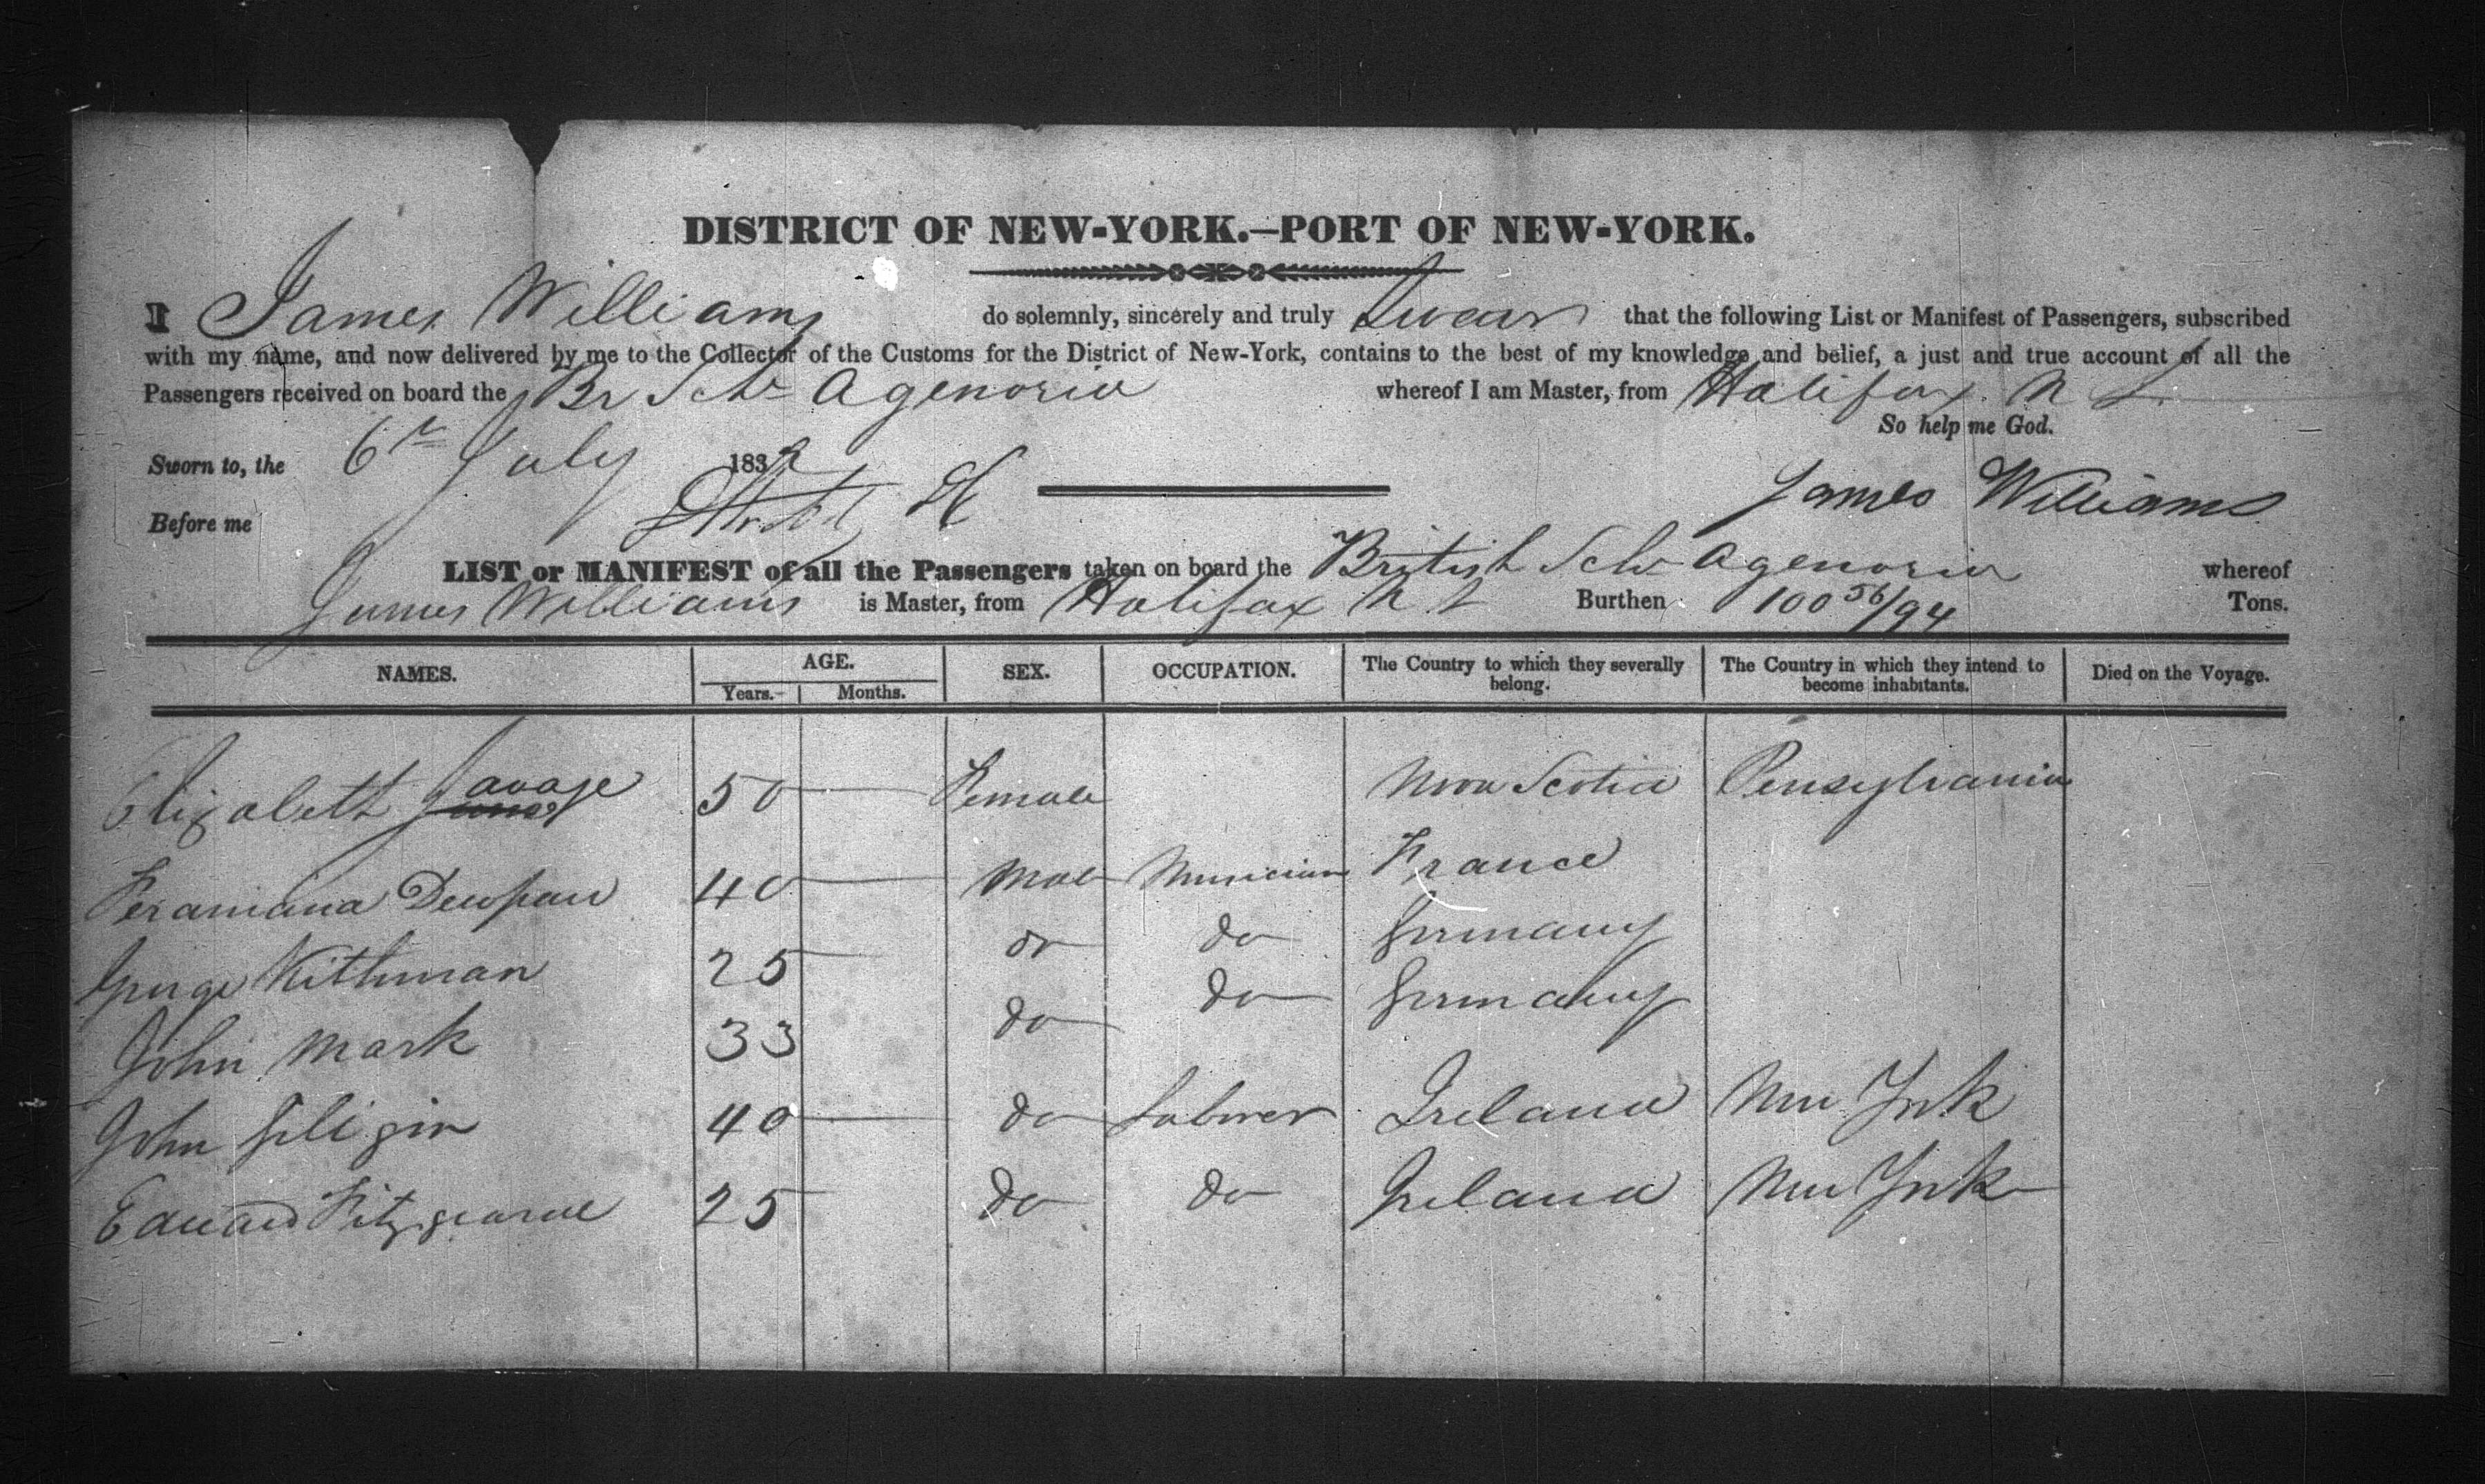 DISTRICT OF NEW-YORK.—PORT OF NEW-YORK.
I James Williams do solemnly, sincerely and truly Swear that the following List or Manifest of Passengers, subscribed
with my name, and now delivered by me to the Collector of the Customs for the District of New-York, contains to the best of my knowledge and belief, a just and true account of all the
Passengers received on board the Br Schr Agenoria whereof I am Master, from Halifax N S
So help me God.
Sworn to, the 6th July 183
Before me James Williams
LIST or MANIFEST of all the Passengers taken on board the British Schr Agenoria whereof
James Williams is Master, from Halifax N S Burthen 100 56/94 Tons.
NAMES. AGE. SEX. OCCUPATION. The Country to which they severally belong. The Country in which they intend to become inhabitants. Died on the Voyage.
Years. Months.
Elizabeth Savage 50 Female Nova Scotia Pensylvania
40 Male Musician France
George Kithman 25 do do Germany
John Mark 33 do do Germany
John Giligin 40 do Labourer Ireland New York
Edward Fitzgearald 25 do do Ireland New York